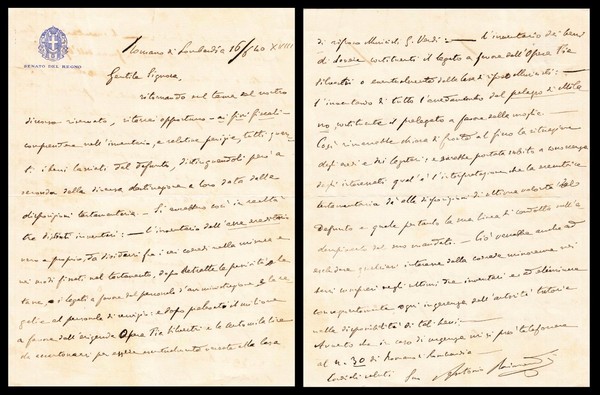 SENATO DEL REGNO
Romano di Lombardia 16/6 40 XVIII
Gentile Signora,
ritornando sul tema del nostro
discorso riservato, riterrei opportuno - ai fini fiscali -
comprendere nell'inventario, e relative perizie, tutti quanti
i beni lasciati dal defunto, distinguendoli però a
seconda della diversa destinazione a loro data dalle
disposizioni testamentarie. - Si avrebbero così in realtà
tre distinti inventari: - L'inventario dell'asse ereditario
vero e proprio, da dividersi fra i vari eredi nella misura e
nei modi fissati nel testamento, dopo detratte le
i legati a favore del personale d'amministrazione e le
al personale di servizio: e dopo prelevato il milione
a favore dell'erigenda Opera Pia e le lire
da per essere eventualmente alla Casa
di riposo Musicisti G. Verdi: - L'inventario dei beni
di costituenti il legato a favore dell'Opera Pia
o eventualmente della Casa di riposo Musicisti: -
L'inventario di tutto l'arredamento del palazzo di Mila
no, costituente il prelegato a favore della moglie. -
Così risulterebbe chiara di fronte al fisco la situazione
degli eredi e dei legatari; e sarebbe portata subito a conoscenza
degli interessati qual'è l'interpretazione che la esecutrice
testamentaria dà alle disposizioni di ultima volontà del
Defunto e quale pertanto la sua linea di condotta nell'a
dempimento del suo mandato. - Ciò verrebbe anche ad
escludere qualsiasi interesse della erede minorenne nei
beni compresi negli ultimi due inventari e ad eliminare
conseguentemente ogni ingerenza dell'autorità tutoria
nella disponibilità di tali beni. -
Avverto che in caso di urgenza mi si può telefonare
al n. 30 di Romano Lombardia -
Cordiali saluti Suo Antonio